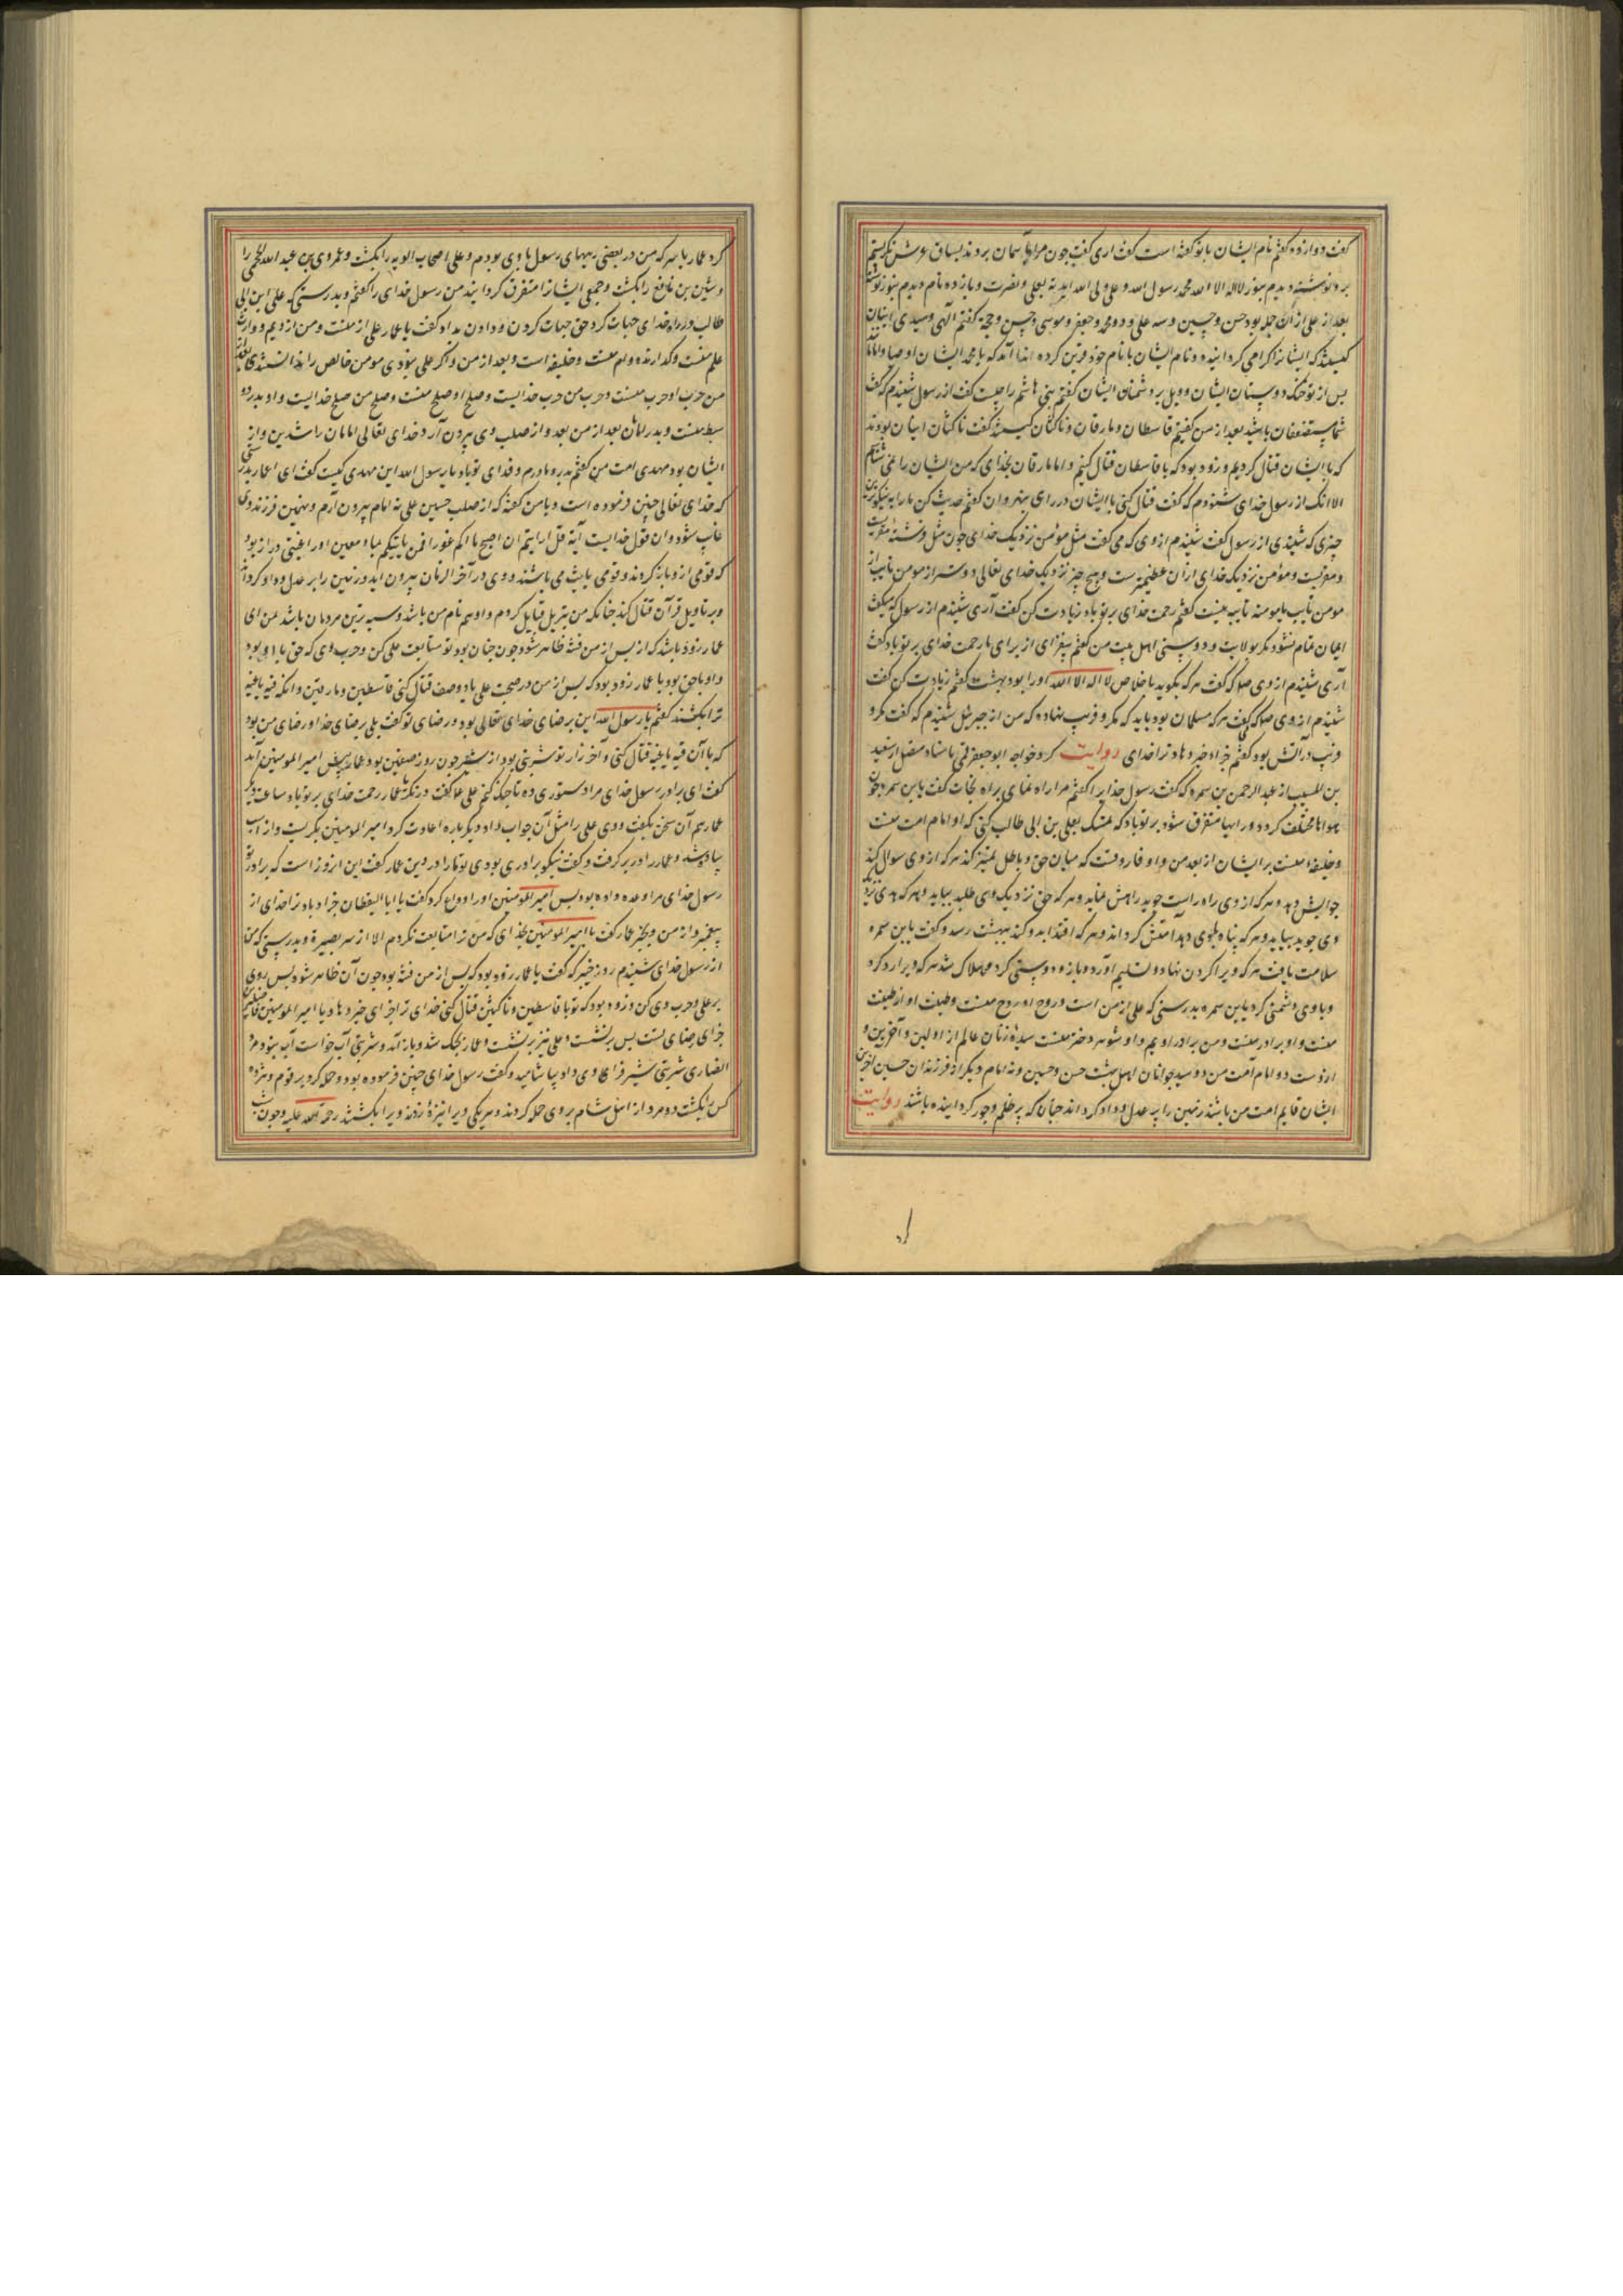 گفت دوازده گفتم نام ایشان با تو گفته است گفت اری گفت چون مرا به آسمان بردند بساق عرش نگریستم
برو نوشته دیدم بنور لا اله الا الله محمد رسول الله و علی ولی الله ایدته بعلی و نصرت و یازده نام دیدم بنور نوشته
بعد از علی از آن جمله بود حسن و حسین و سه علی و دو محمد و جعفر و موسی و حسن و حجة گفتم الهی و سیدی اینان
کیستند که ایشانرا کرامی کردانیده و نام ایشان با نام خود قرین کرده ندا آمد که یا محمد ایشان اوصیا و امامان
بس از تو خنک دوستان ایشان و ویل بر دشمنان ایشان گفتم بنی هاشم را چیست گفت از رسول شنیدم که گفت
شما مستضعفان باشید بعد از من گفتم قاسطان و مارقان و ناکثان کیستند گفت ناکثان اینان بودند
که با ایشان قتال کردیم و زود بود که با قاسطان قتال کنیم و اما مارقان بخدای که من ایشان را نمی شناسم
الا انک از رسول خدای شنودم که گفت قتال کنی با ایشان در رای نهروان گفتم حدیث کن ما را به نیکوترین
چیزی که شنیدی از رسول گفت شنیدم از وی که می گفت مثل مؤمن نزدیک خدای چون مثل فرشته مقربست
و مؤمن نزدیک خدای ازان عظیمترست و هیچ چیز نزدیک خدای تعالی دوستر از مومن تایب از
مومن تایب یا مومنه تایبه نیست گفتم رحمت خدای بر تو باد زیادت کن گفت آری شنیدم از رسول که میگفت
ایمان تمام نشود مکر بولایت و دوستی اهل بیت من گفتم بیفزای از برای ما رحمت خدای بر تو باد گفت
آری شنیدم از وی صلا که گفت هر که بکوید باخلاص لا اله الا الله او را بود بهشت گفتم زیادت کن گفت
شنیدم از وی صلا که گفت هر که مسلمان بود باید که مکر و فریب ننهاده که من از جبرئیل شنیدم که گفت مکر و
فریب در آتش بود گفتم جزاه خیر دهاد ترا خدای روایت کرد خواجه ابو جعفر قمی باسناد مفضل از سعید
بن المسیب از عبد الرحمن بن سمره که گفت رسول خدایرا گفتم مرا راه نمای براه نجات گفت یابن سمره چون
هواها مختلف گردد و رایها متفرق شود بر تو باد که تمسک بعلی بن ابی طالب کنی که او امام امت منست
و خلیفه منست بر ایشان از بعد من و او فاروقست که میان حق و باطل تمییز کند هر که از وی سوال کند
جوابش دهد و هر که از وی راه راست جوید راهش نماید و هر که حق نزدیک وی طلبد بیابد و هر که هدی نزد
وی جوید بیابد و هر که پناه باوی دهد آمنش گرداند و هر که اقتدا بدو کند ببهشت رسد و گفت یابن سمره
سلامت یافت هر که ویرا کردن نهاد و تسلیم آورد و بازو دوستی کرد و هلاک شد هر که ویرا رد کرد
و باوی دشمنی کرد یابن سمره بدرستی که علی از من است و روح او روح منست و طینت او از طینت
منست و او برادر منست و من برادر اویم و او شوهر دختر منست سیدهٔ زنان عالم از اولین و آخرین و
ازوست دو امام امت من دو سید جوانان اهل بهشت حسن و حسین و نه امام دیگر از فرزندان حسین آخرین
ایشان قایم امت من باشد زمین را پر عدل و داد کرداند چنان که پر ظلم و جور کردانیده باشند روایت
کرد عمار یاسر که من در بعضی ربهای رسول باوی بودم و علی اصحاب الویه را بکشت و عمرو بن عبد الله الجمحی را
و شیبن بن نافع را بکشت و جمعی ایشانرا متفرق کردانید من رسول خدای را گفتم و بدرستی که علی ابن ابی
طالب در راه خدای جهاد کرد حق جهاد کردن و دادن بداد گفت یا عمار علی از منست و من از ویم و وارث
علم منست و گذارنده وام منست و خلیفه است و بعد از من و اگر علی نبودی مومن خالص را ندانستندی بعد از
من حرب او حرب منست و حرب من حرب خدایست و صلح او صلح منست و صلح من صلح خدایست و او پدر دو
سبط منست و پدر امامان بعد از من بعد و از صلب وی بیرون آرد خدای تعالی امامان راشدین و از
ایشان بود مهدی امت من گفتم پدر و مادرم فدای تو باد یا رسول الله این مهدی کیست گفت ای عمار بدرستی
که خدای تعالی چنین فرموده است و با من گفته که از صلب حسین علی نه امام بیرون آرم و نهمین فرزند وی
غایب شود و ان قول خدایست آیة قل ارایتم ان اصبح ماؤکم غورا فمن یاتیکم بماء معین او را غیبتی دراز بود
که قومی ازو بازگردند و قومی بایث می باشند و وی در آخر الزمان بیرون اید و زمین را بر عدل و داد کرداند
و بر تاویل قرآن قتال کند چنانکه من بر تنزیل قتال کردم و او هم نام من باشد و شبیه ترین مردمان باشد بمن ای
عمار زود باشد که از پس از من فتنه ظاهر شود چون چنان بود تو متابعت علی کن و حرب وی که حق با او بود
و او با حق بود یا عمار زود بود که بس از من در صحبت علی باد و صف قتال کنی قاسطین و مارقین و انکه فئه باغیه
ترا بکشند گفتم یا رسول الله این بر رضای خدای تعالی بود و رضای تو گفت بلی بر رضای خدا و رضای من بود
که با آن فئه باغیه قتال کنی و آخر زاد تو شربتی بود از شیر چون روز صفین بود عمار پیش امیر المومنین آمد
گفت ای برادر رسول خدای مرا دستوری ده تا جنگ کنم علی علا گفت درنگ یا عمار رحمت خدای بر تو باد ساعتی دیگر
عمار هم آن سخن بگفت و وی علی را مثل آن جواب داد و دیگرباره اعادت کرد امیر المومنین بگریست و از اسب
پیاده شد و عمار را در بر گرفت و گفت نیکو برادری بودی تو مارا در دین عمار گفت این امروز است که برادر تو
رسول خدای مرا وعده داده بود پس امیر المومنین او را وداع کرد گفت یا ابا الیقظان جزا دهاد ترا خدای از
پیغمبر و از من و بخیر عمار گفت یا امیر المومنین بخدای که من ترا متابعت نکردم الا از سر بصیرة و بدرستی که من
از رسول خدای شنیدم روز خیبر که گفت یا عمار زود بود که پس از من فتنه بود چون آن ظاهر شود پس روی
بر علی و حرب وی کن و زود بود که تو با قاسطین و ناکثین قتال کنی خدای ترا جزای خیر دهاد یا امیر المومنین
جزای رضای تست پس برنشست و علی نیز برنشست و عمار بجنگ شد و باز آمد و شربتی آب خواست آب نبود مرد
انصاری شربتی شیر فرا وی داد بیاشامید و گفت رسول خدای چنین فرموده بود و حمله کرد بر قوم و هژده
کس را بکشت دو مرد از اهل شام بر وی حمله کردند و هر یکی ویرا نیزهٔ زدند و ویرا بکشتند رحمة الله علیه و چون شب